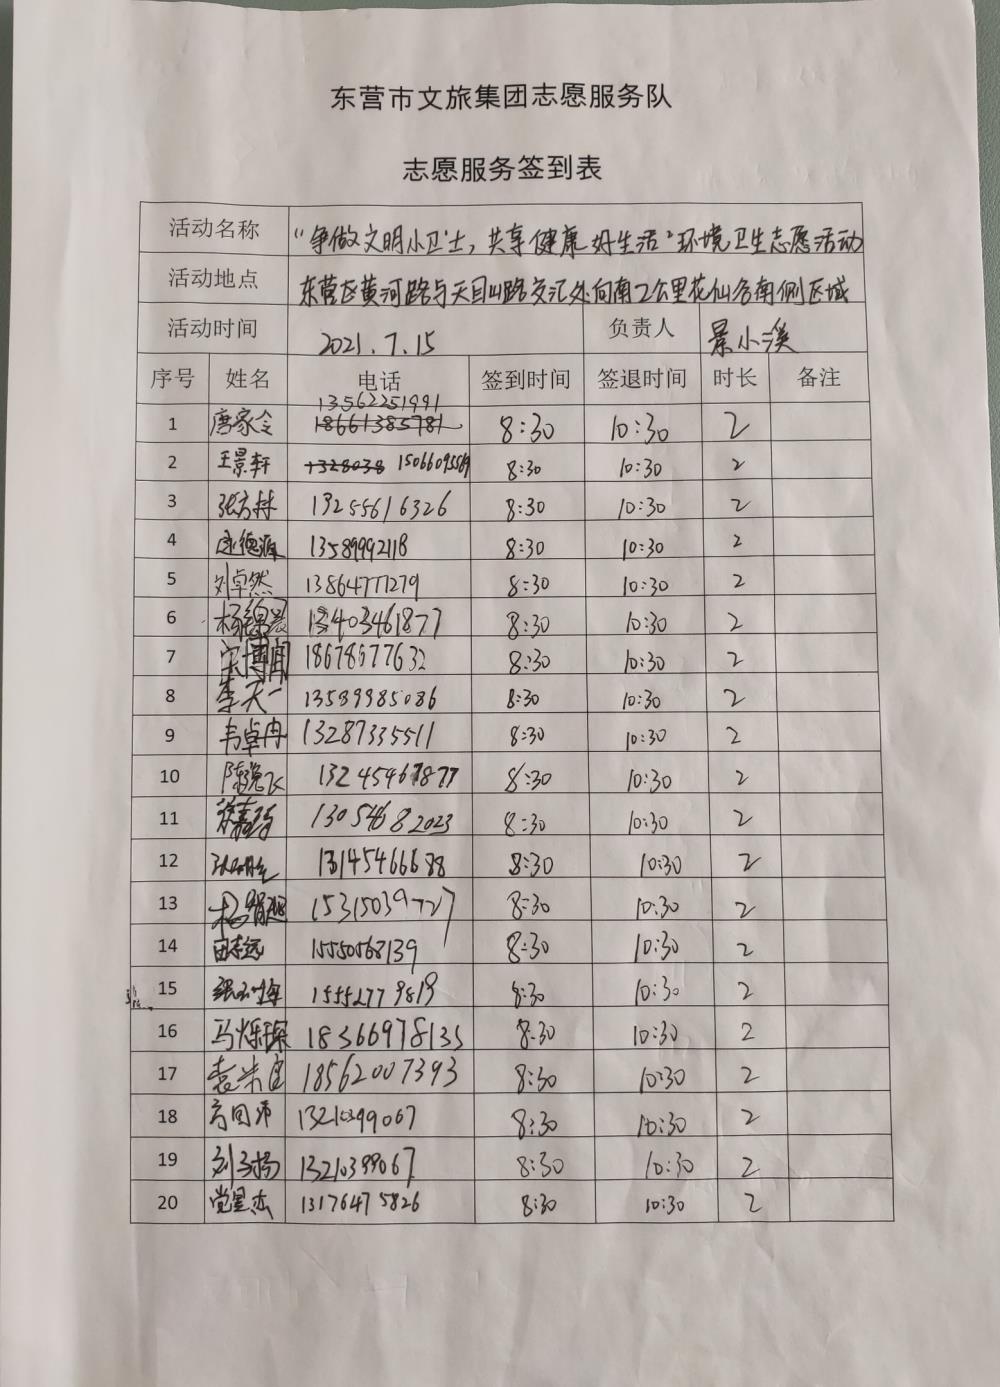 东营市文旅集团志愿服务队
志愿服务签到表
活动名称 “争做文明小卫士，共享健康好生活”环境卫生志愿活动
活动地点 东营区黄河路与天目山路交汇处向南2公里花仙谷南侧区域
活动时间 2021.7.15 负责人 景小溪
序号 姓名 电话 签到时间 签退时间 时长 备注
13562251991
1 唐家令 18661385781 8:30 10:30 2
2 王景轩 1328038 15066095569 8:30 10:30 2
3 张方赫 13255616326 8:30 10:30 2
4 德源 13589992118 8:30 10:30 2
5 刘卓然 13864777279 8:30 10:30 2
6 杨 13403461877 8:30 10:30 2
7 宋博闻 18678677632 8:30 10:30 2
8 李天一 13589985086 8:30 10:30 2
9 韦卓冉 13287335511 8:30 10:30 2
10 陈逸飞 13245467877 8:30 10:30 2
11 13054682023 8:30 10:30 2
12 13145466688 8:30 10:30 2
13 杨 15315039727 8:30 10:30 2
14 田志远 15550568139 8:30 10:30 2
15 15552779819 8:30 10:30 2
16 马烁琛 18366978135 8:30 10:30 2
17 袁米良 18562007393 8:30 10:30 2
18 13210399067 8:30 10:30 2
19 刘子扬 13210399067 8:30 10:30 2
20 党星杰 13176475826 8:30 10:30 2